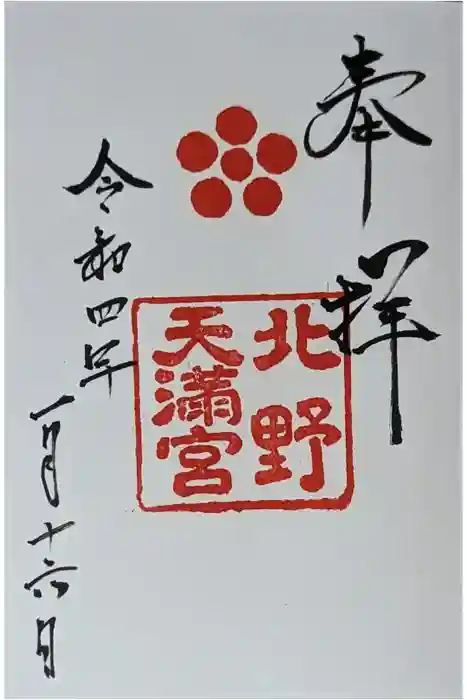 奉拝
北野
天満宮
令和四年
一月十六日